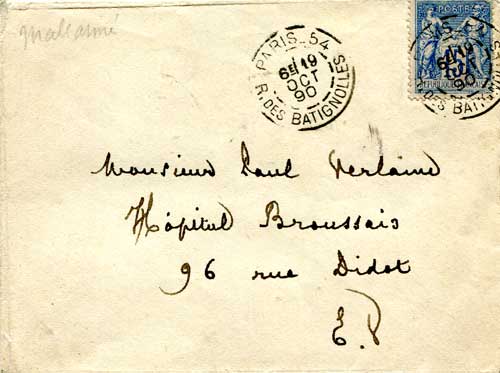 Mallarmé
PARIS_54
6E 19
OCT
90
R. DES BATIGNOLLES
POSTES
15
Monsieur Paul Verlaine
Hôpital Broussais
96 rue Didot
E.V